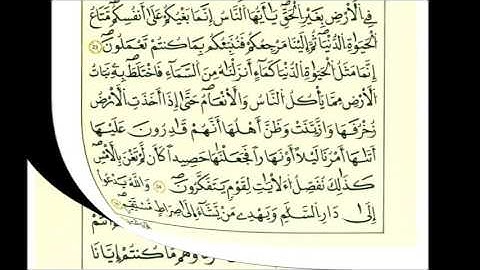 فِي الْأَرْضِ بِغَيْرِ الْحَقِّ يَا أَيُّهَا النَّاسُ إِنَّمَا بَغْيُكُمْ عَلَىٰ أَنفُسِكُم مَّتَاعَ
الْحَيَوٰةِ الدُّنْيَا ثُمَّ إِلَيْنَا مَرْجِعُكُمْ فَنُنَبِّئُكُم بِمَا كُنتُمْ تَعْمَلُونَ ٢٣
إِنَّمَا مَثَلُ الْحَيَوٰةِ الدُّنْيَا كَمَاءٍ أَنزَلْنَٰهُ مِنَ السَّمَاءِ فَاخْتَلَطَ بِهِ نَبَاتُ
الْأَرْضِ مِمَّا يَأْكُلُ النَّاسُ وَالْأَنْعَٰمُ حَتَّىٰ إِذَا أَخَذَتِ الْأَرْضُ
زُخْرُفَهَا وَازَّيَّنَتْ وَظَنَّ أَهْلُهَا أَنَّهُمْ قَٰدِرُونَ عَلَيْهَا
أَتَىٰهَا أَمْرُنَا لَيْلًا أَوْ نَهَارًا فَجَعَلْنَٰهَا حَصِيدًا كَأَن لَّمْ تَغْنَ بِالْأَمْسِ
كَذَٰلِكَ نُفَصِّلُ الْآيَٰتِ لِقَوْمٍ يَتَفَكَّرُونَ ٢٤ وَاللَّهُ يَدْعُوا
إِلَىٰ دَارِ السَّلَٰمِ وَيَهْدِي مَن يَشَاءُ إِلَىٰ صِرَٰطٍ مُّسْتَقِيمٍ
وَهُم مَّا كُنتُمْ إِيَّانَا